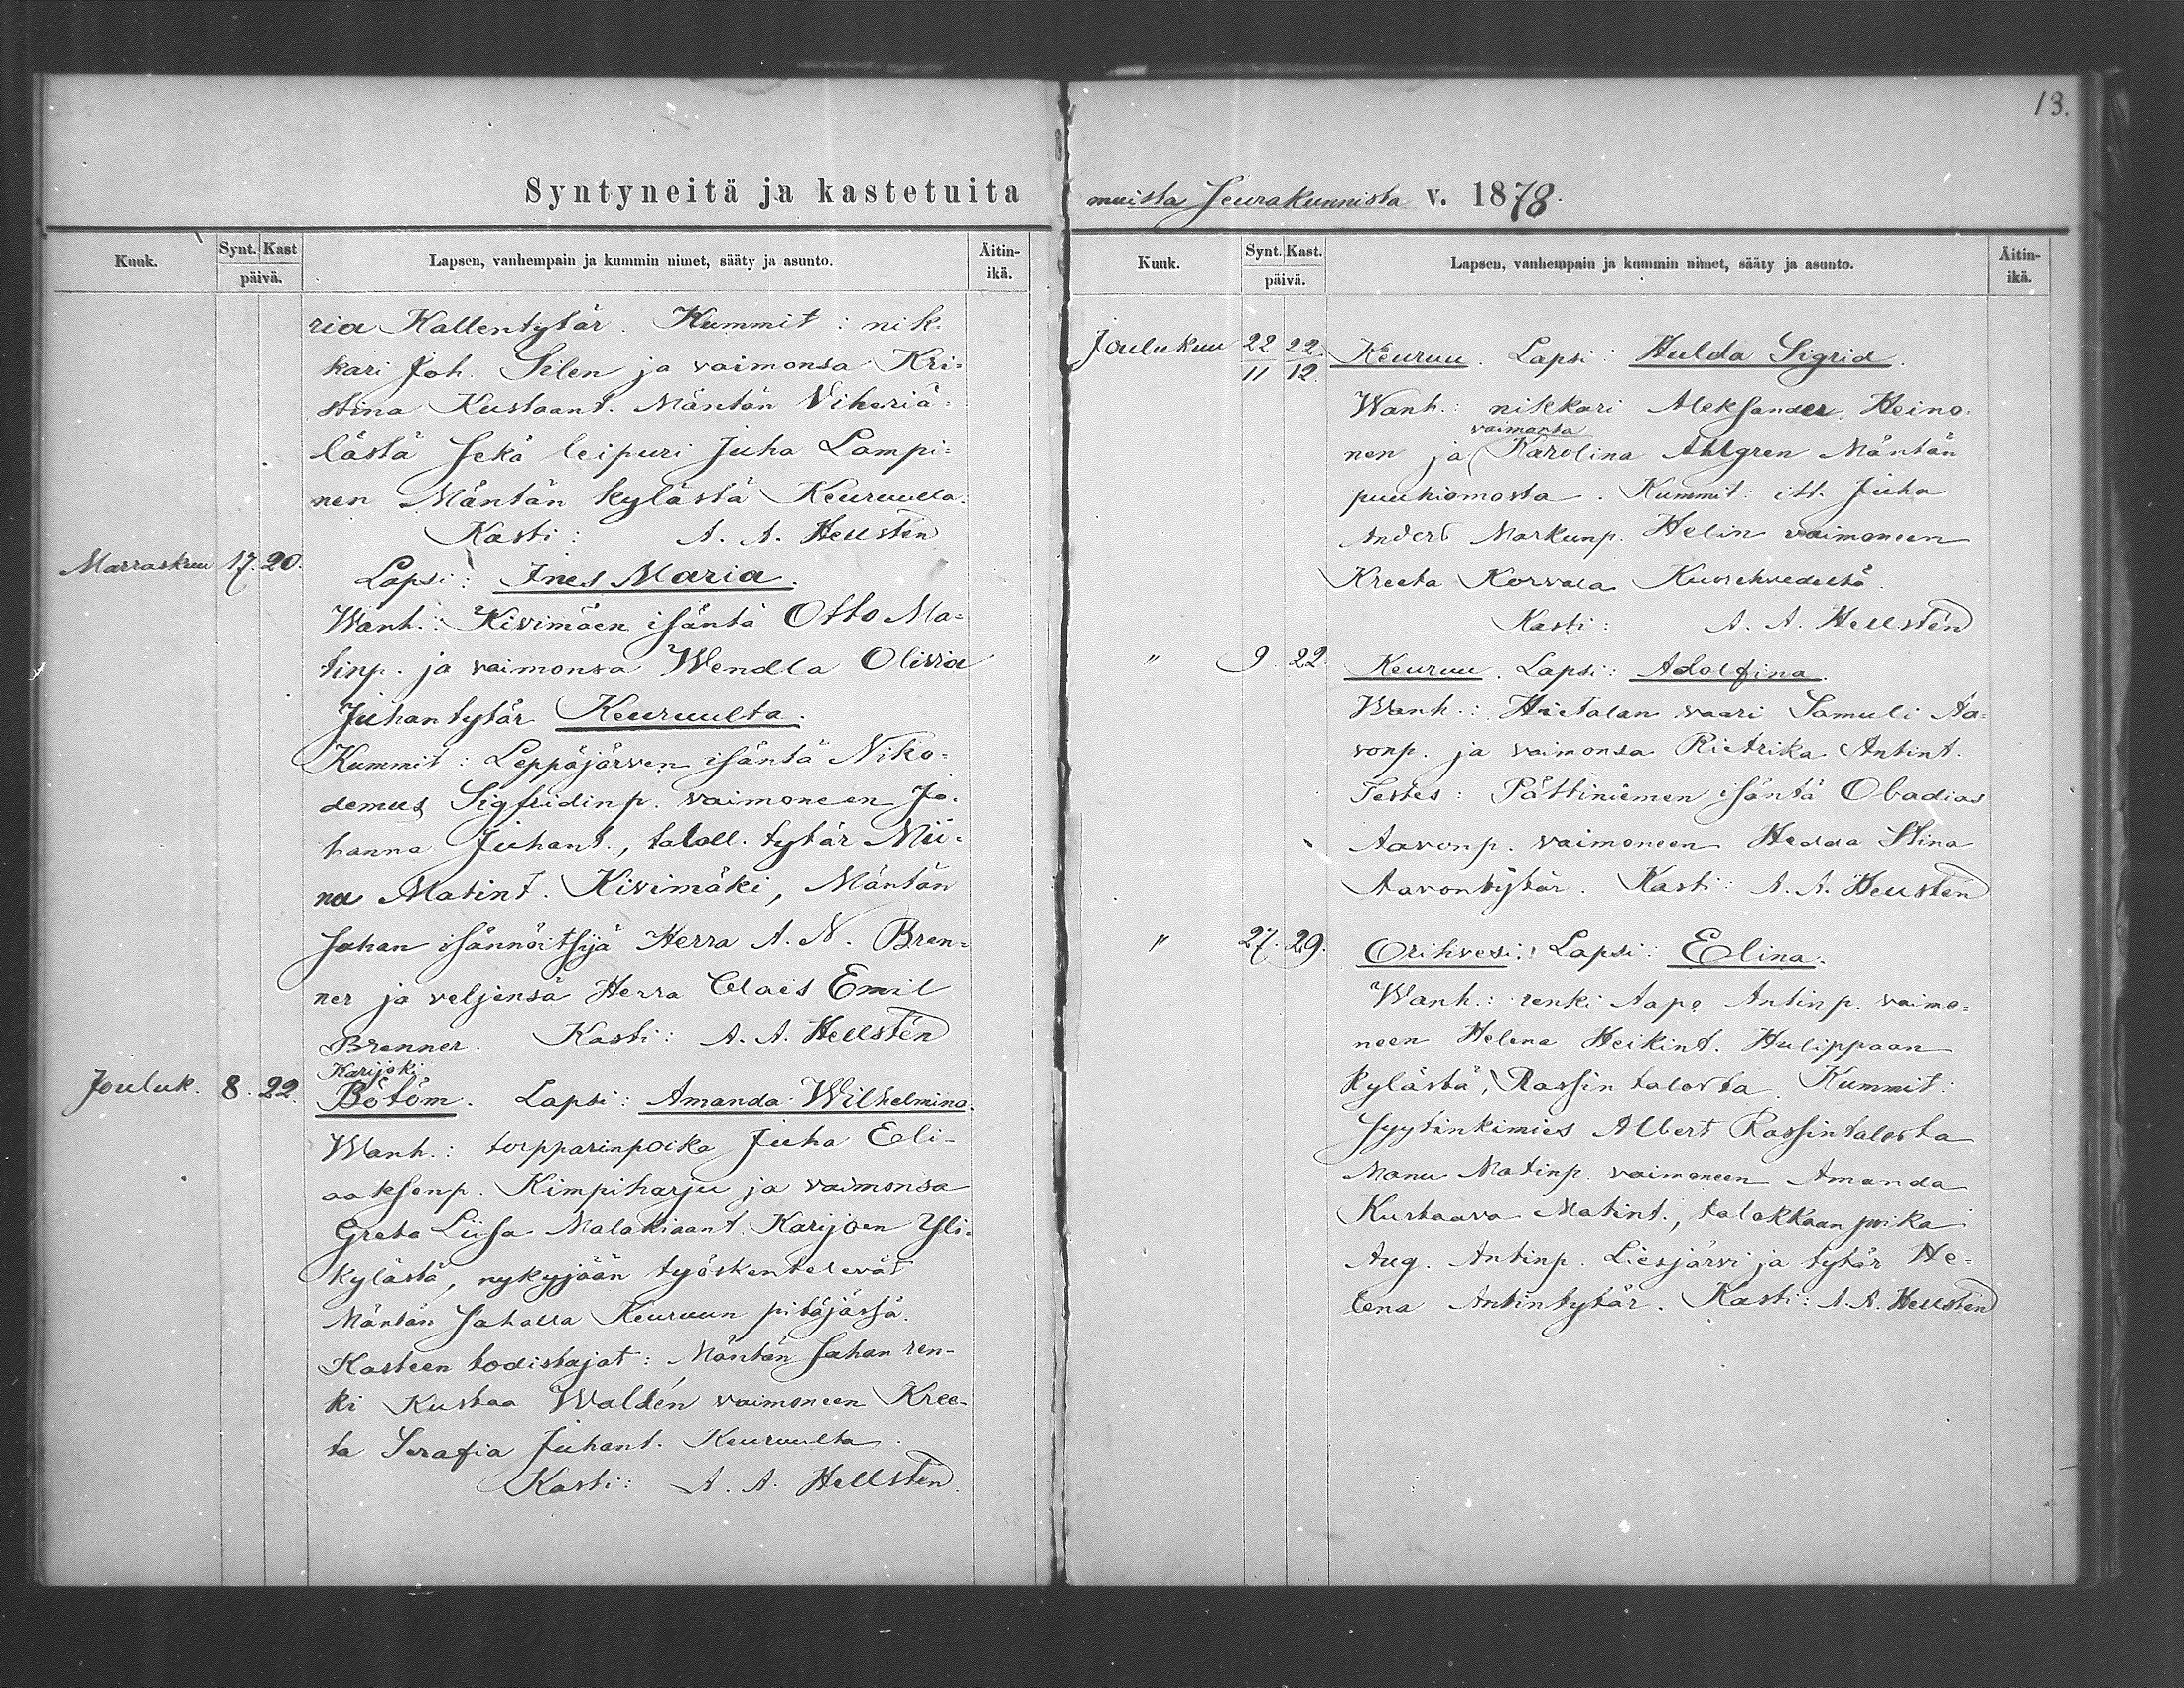 Syntyneitä ja kastetuita
Kuuk.
Synt. Kast
päivä.
Lapsen, vanhempain ja kummin nimet, sääty ja asunto.
Äitin-
ikä.
ria Kallentytär. Kummit: nik-
kari Joh. Silen ja vaimonsa Kri-
stina Kustaant. Mäntän Viheriä-
lästä sekä leipuri Juha Lampi-
nen Mäntän kylästä Keuruulla.
Kasti: A. A. Hellstén
Marraskuu 17. 20. Lapsi: Ines Maria.
Wanh.: Kivimäen isäntä Otto Ma-
tinp. ja vaimonsa Wendla Olivia
Juhantytär Keuruulta.
Kummit: Leppäjärven isäntä Niko-
demus Sigfridinp. vaimoneen Jo-
hanna Juhant., taloll. tytär Mii-
na Matint. Kivimäki, Mäntän
sahan isännöitsijä Herra A. N. Bren-
ner ja veljensä Herra Claes Emil
Brenner. Kasti: A. A. Hellstén
Karijoki
Jouluk. 8. 22. Bötöm. Lapsi: Amanda Wilhelmina.
Wanh.: torpparinpoika Juha Eli-
aaksonp. Kimpiharju ja vaimonsa
Greta Liisa Malakiaant. Karijoen Yli-
kylästä, nykyjään työskentelevät
Mäntän sahalla Keuruun pitäjässä.
Kasteen todistajat: Mäntän sahan ren-
ki Kustaa Waldén vaimoneen Kree-
ta Serafia Juhant. Keuruulta.
Kasti: A. A. Hellstén.
13.
muista seurakunnista v. 1878.
Kuuk.
Synt. Kast.
päivä.
Lapsen, vanhempain ja kummin nimet, sääty ja asunto.
Äitin-
ikä.
Joulukuu 22/11 22./12. Keuruu. Lapsi: Hulda Sigrid.
Wanh.: nikkari Aleksander Heino-
vaimonsa
nen ja Karolina Ahlgren Mäntän
puuhiomosta. Kummit: itl. Juha
Anders Markunp. Helin vaimoneen
Kreeta Korvala Kuorehvedeltä.
Kasti: A. A. Hellstén
" 9. 22. Keuruu. Lapsi: Adolfina.
Wanh.: Hietalan vaari Samuli Aa-
vonp. ja vaimonsa Rietrika Antint.
Testes: Pättiniemen isäntä Obadias
Aavonp. vaimoneen Hedda Stina
Aavontytär. Kasti: A. A. Hellstén
" 27. 29. Orihvesi: Lapsi: Elina.
Wanh.: renki Aapo Antinp. vaimo-
neen Helena Heikint. Hulippaan
kylästä, Rassin talosta. Kummit:
syytinkimies Albert Rassintalosta
Manu Matinp. vaimoneen Amanda
Kustaava Matint., talokkaan poika
Aug. Antinp. Liesjärvi ja tytär He-
lena Antintytär. Kasti: A. A. Hellstén